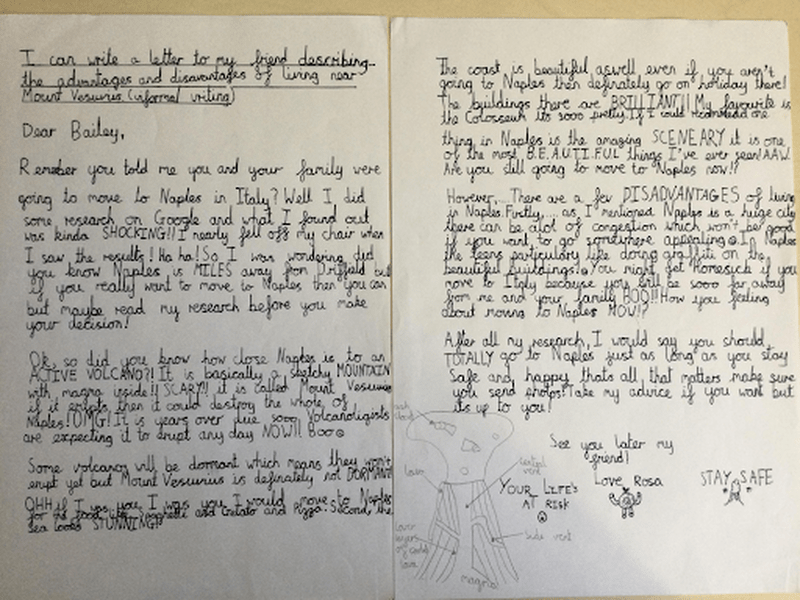 I can write a letter to my friend describing
the advantages and disavantages of living near
Mount Vesuvius (informal writing)
Dear Bailey,
Remeber you told me you and your family were
going to move to Naples in Italy? Well I did
some research on Google and what I found out
was kinda SHOCKING!! I nearly fell off my chair when
I saw the results! Ha ha! So I was wondering did
you know Naples is MILES away from Driffeld but
if you really want to move to Naples then you can
but maybe read my research before you make
your decision!
Ok, so did you know how close Naples is to an
ACTIVE VOLCANO?! It is basically a sketchy MOUNTAIN
with magma inside!! SCARY!! it is called Mount Vesuvius
if it erupts, then it could destroy the whole of
Naples! OMG! It is years over due sooo Volcanoligists
are expecting it to erupt any day NOW!! Boo
Some volcanos will be dormant which means they won't
erupt yet but Mount Vesuvius is definately not DORMANT
OHH if I was you I would move to Naples
for the food like Spaghetti and Gelato and Pizza. Second, the
sea looks STUNNING!!
The coast is beautiful aswell even if you aren't
going to Naples then definately go on holiday there!
The buildings there are BRILLIANT!! My favourite is
the Colosseum its sooo pretty. If I could recommend one
thing in Naples is the amazing SCENEARY it is one
of the most B.E.A.U.T.I.F.U.L things I've ever seen! AAW.
Are you still going to move to Naples now!?
However,... There are a few DISADVANTAGES of living
in Naples. Firstly,.... as I mentioned Naples is a huge city
there can be alot of congestion which won't be good
if you want to go somewhere appealing. In Naples
the teens particulary like doing graffiti on the
beautiful buildings! You might get Homesick if you
move to Italy because you will be sooo far away
from me and your family BOO!! How you feeling
about moving to Naples NOW!?
After all my research, I would say you should
TOTALLY go to Naples just as long as you stay
Safe and happy thats all that matters make sure
you send photos! Take my advice if you want but
its up to you!
See you later my
friend!
Love Rosa
STAY SAFE
YOUR LIFE'S
AT RISK
ash
cloud
lava
central
vent
side vent
layers
of
lava
magma